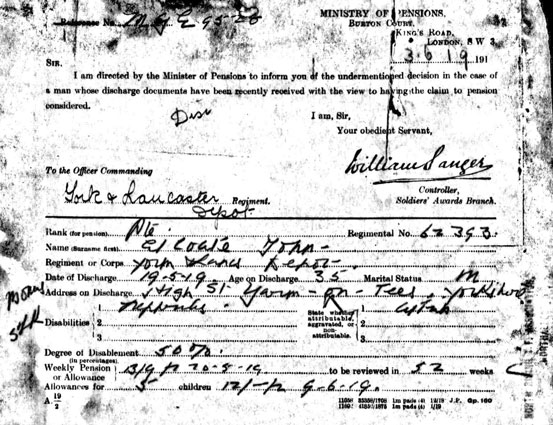 MINISTRY OF PENSIONS,
Reference No. M 9 E 95-28
BURTON COURT,
KING'S ROAD,
LONDON, S W 3
3 6 19 191
SIR,
I am directed by the Minister of Pensions to inform you of the undermentioned decision in the case of
a man whose discharge documents have been recently received with the view to having the claim to pension
considered.
I am, Sir,
Your obedient Servant,
William Sanger
To the Officer Commanding
Controller,
Soldiers' Awards Branch.
York & Lancaster Regiment.
Depot
Rank (for pension) Pte. Regimental No. 62393
Name (Surname first) John
Regiment or Corps York Lancs Depot
Date of Discharge 19-5-19 Age on Discharge 35 Marital Status M
Address on Discharge High St. Yarm-on-Tees
Disabilities 1 Nephritis.
2
3
State whether attributable, aggravated, or non-attributable.
1
2
3
Degree of Disablement 50%
(in percentages)
Weekly Pension or Allowance 13/9 to be reviewed in 52 weeks
Allowances for 5 children 9-6-19.
A 19/2